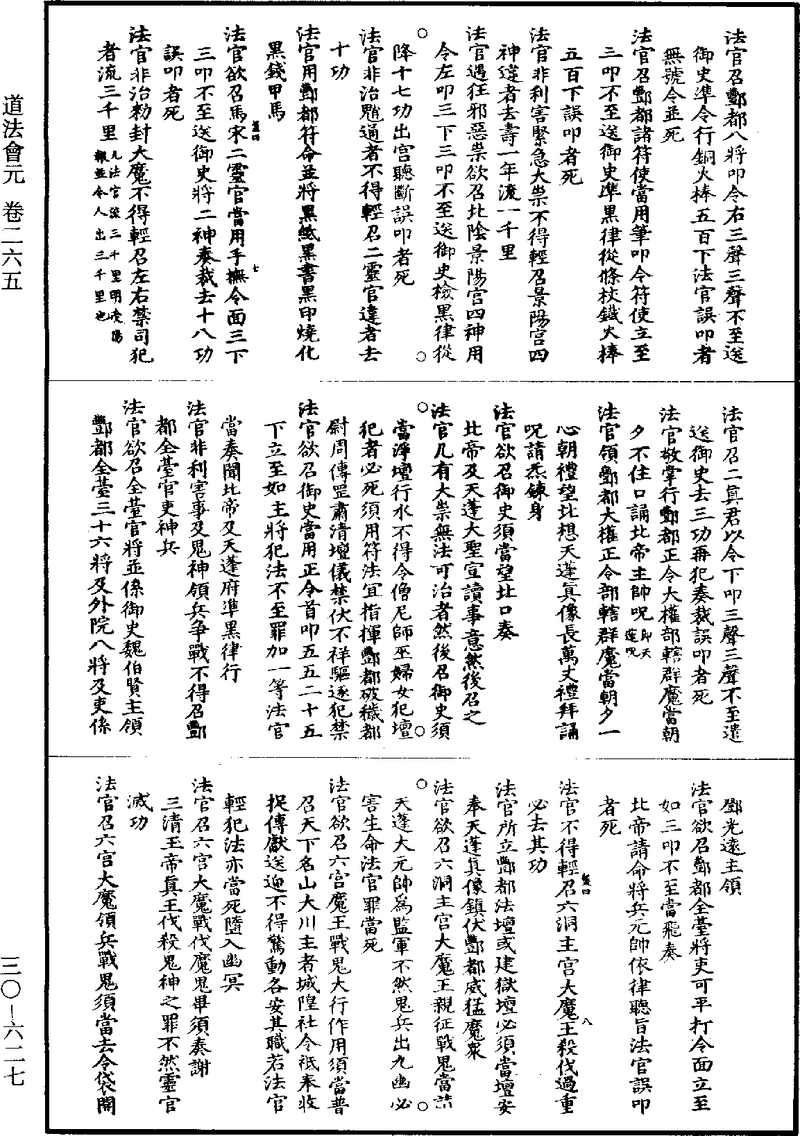 道法會元 卷二六五
三〇—六二七
法官召酆都八將叩令右三聲三聲不至送
御史準令行銅火棒五百下法官誤叩者
無號令並死
法官召酆都諸符使當用筆叩令符使立至
三叩不至送御史準黑律從條杖鐵火棒
五百下誤叩者死
法官非利害緊急大祟不得輕召景陽宮四
神違者去壽一年流一千里
法官遇狂邪惡祟欲召北陰景陽宮四神用
令左叩三下三叩不至送御史檢黑律從
降十七功出宮聽斷誤叩者死
法官非治魈通者不得輕召二靈官違者去
十功
法官用酆都符命並將黑紙黑書黑印燒化
黑錢甲馬
法官欲召馬宋二靈官當用手撫令面三下
三叩不至送御史將二神奏裁去十八功
誤叩者死
法官非治勑封大魔不得輕召左右禁司犯
者流三千里凡法官流三千里明
報並令人出三千里也
法官召二真君以令下叩三聲三聲不至遣
送御史去三功再犯奏裁誤叩者死
法官敬掌行酆都正令大權部轄群魔當朝
夕不住口誦北帝主帥呪即天蓬呪
法官領酆都大權正令部轄群魔當朝夕一
心朝禮望北想天蓬真像長萬丈禮拜誦
呪請炁鍊身
法官欲召御史須當望北口奏
北帝及天蓬大聖宣讀事意然後召之
法官凡有大祟無法可治者然後召御史須
當淨壇行水不得令僧尼師巫婦女犯壇
犯者必死須用符法宜指揮酆都破穢都
尉周傳罡肅清壇儀禁伏不祥驅逐犯禁
法官欲召御史當用正令首叩五五二十五
下立至如主將犯法不至罪加一等法官
當奏聞北帝及天蓬府準黑律行
法官非利害事及鬼神領兵爭戰不得召酆
都全臺官吏神兵
法官欲召全臺官將並係御史魏伯賢主領
酆都全臺三十六將及外院八將及吏係
鄧光遠主領
法官欲召酆都全臺將吏可平打令面立至
如三叩不至當飛奏
北帝請命將兵元帥依律聽旨法官誤叩
者死
法官不得輕召六洞主宮大魔王殺伐過重
必去其功
法官所立酆都法壇或建獄壇必須當壇安
奉天蓬真像鎮伏酆都威猛魔衆
法官欲召六洞主宮大魔王親征戰鬼當請
天蓬大元帥為監軍不然鬼兵出九幽必
害生命法官罪當死
法官欲召六宮魔王戰鬼大行作用須當普
召天下名山大川主者城隍社令祇奉收
捉傳獻送迎不得驚動各安其職若法官
輕犯法亦當死隨入幽冥
法官召六宮大魔戰伐魔鬼畢須奏謝
三清玉帝真王伐殺鬼神之罪不然靈官
滅功
法官召六宮大魔領兵戰鬼須當去令袋開